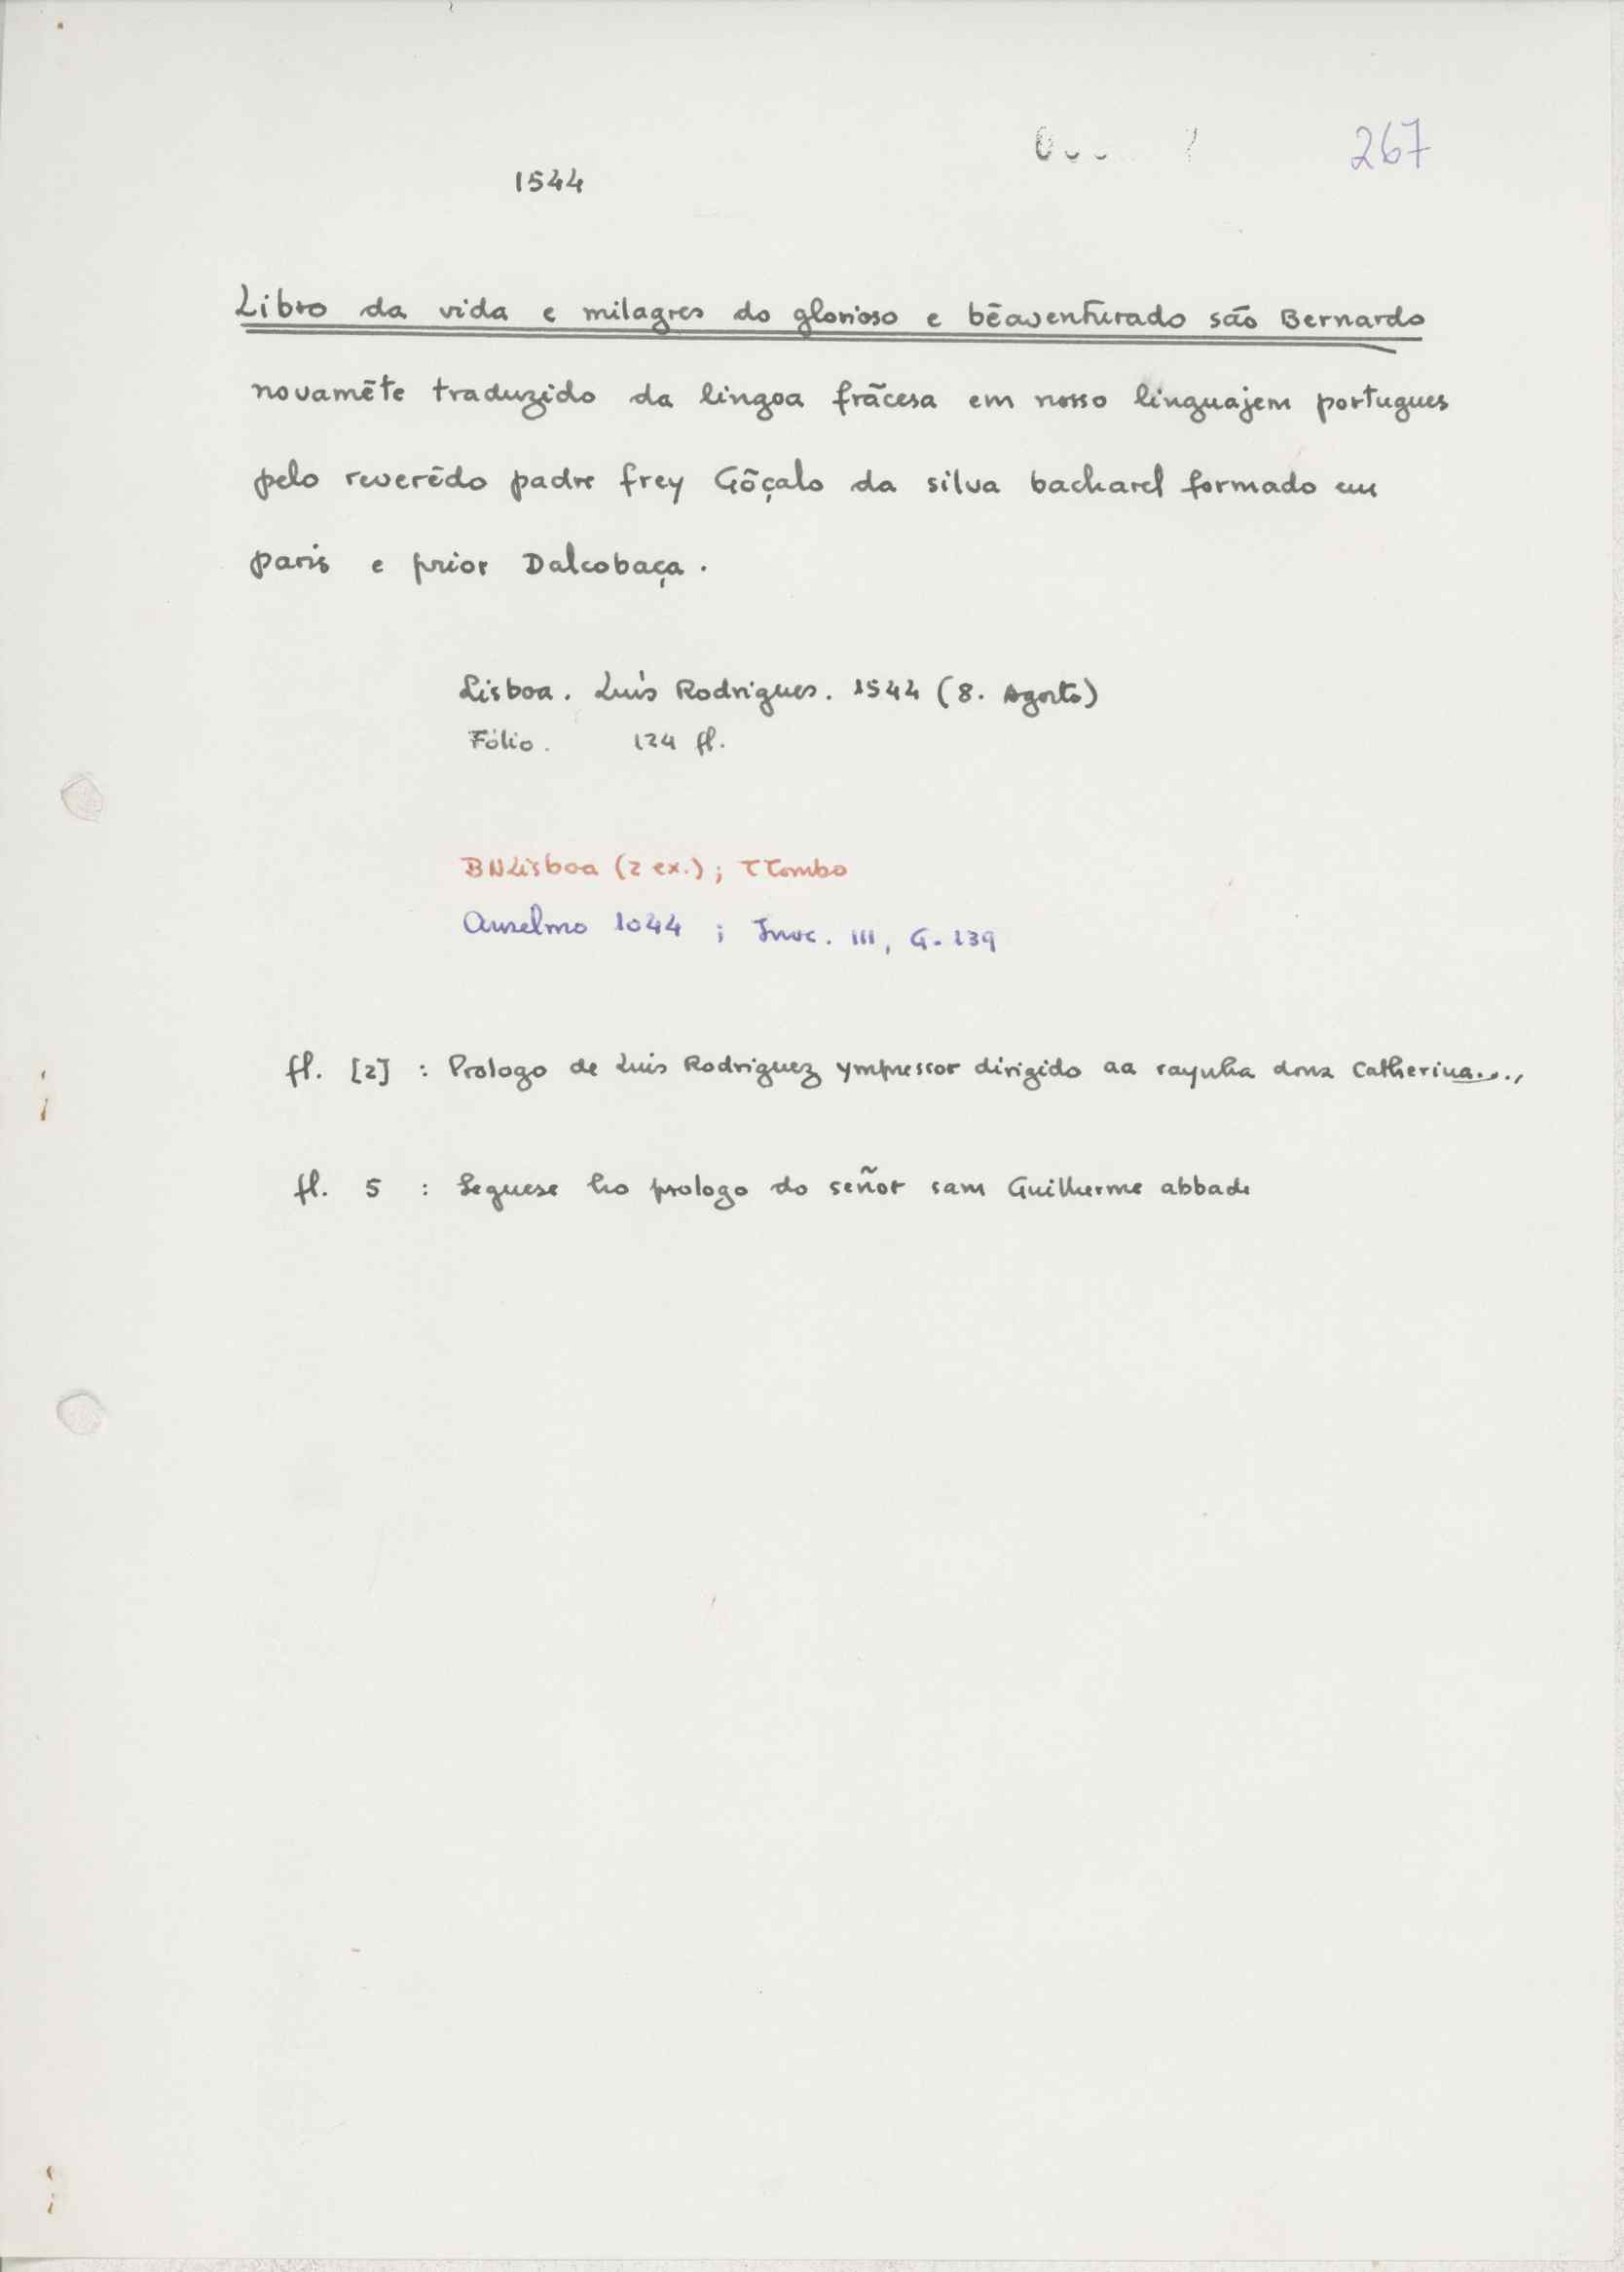 267
1544
Libro da vida e milagres do glorioso e bẽaventurado são Bernardo
novamẽte traduzido da lingoa frãcesa em nosso linguajem portugues
pelo reverẽdo padre frey Gõçalo da silva bacharel formado em
paris e prior Dalcobaça.
Lisboa. Luís Rodrigues. 1544 (8. Agosto)
Fólio. 124 fl.
BNLisboa (2 ex.); TTombo
Anselmo 1044 ; Inoc. III, G. 139
fl. [2] : Prologo de Luis Rodriguez ympressor dirigido aa raynha dona Catherina...,
fl. 5 : Seguese ho prologo do señor sam Guilherme abbade